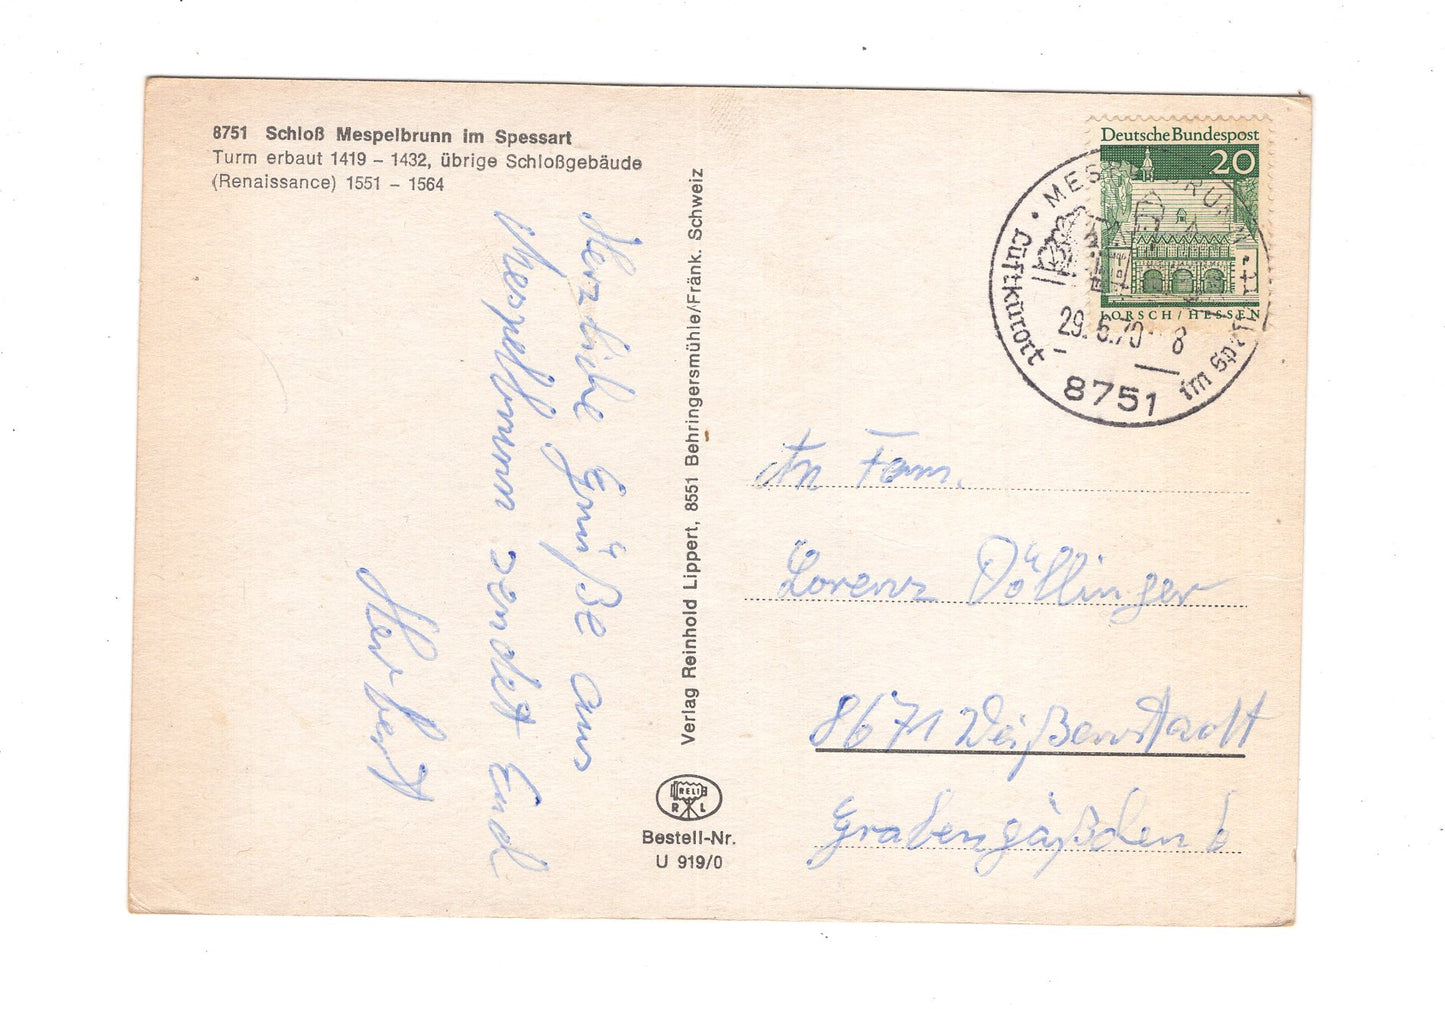 8751 Schloß Mespelbrunn im Spessart
Turm erbaut 1419 – 1432, übrige Schloßgebäude
(Renaissance) 1551 – 1564
Herzliche Grüße aus
Mespelbrunn sendet Euch
Herbert
Verlag Reinhold Lippert, 8551 Behringersmühle/Fränk. Schweiz
RELI
R L
Bestell-Nr.
U 919/0
Deutsche Bundespost
20
LORSCH/HESSEN
MESPELBRUNN
Luftkurort
29.6.70 - 8
8751
im
An Fam.
Lorenz Döllinger
8671 Weißenstadt
Grabengäßchen 6